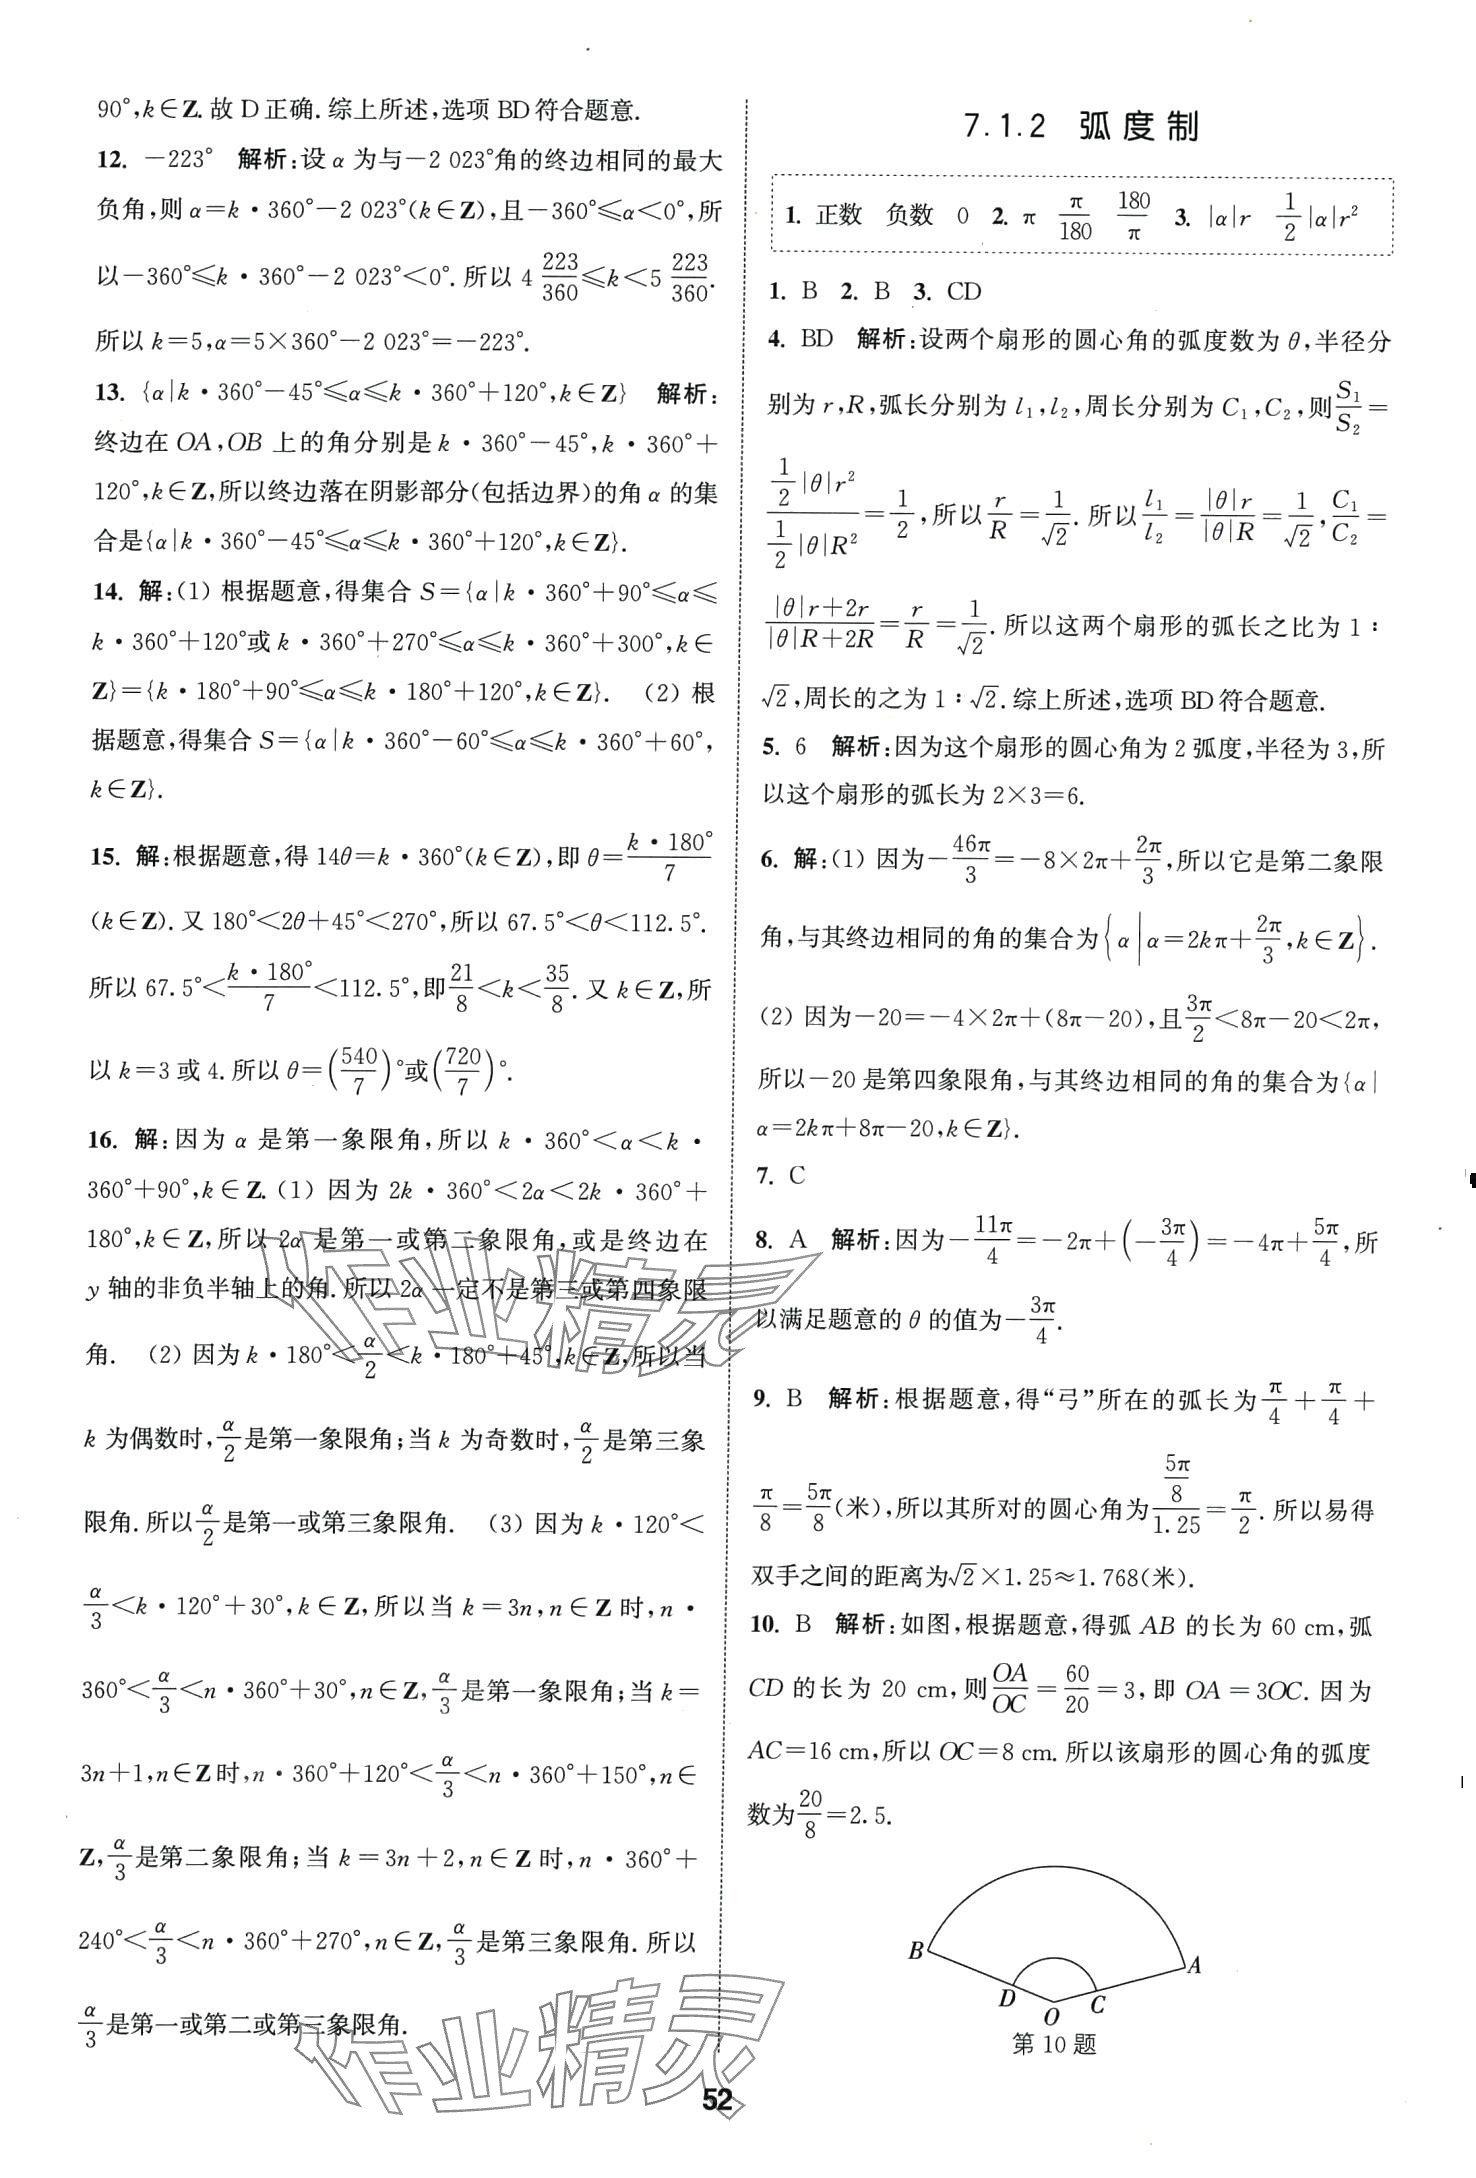 90°,k∈Z.故D正确.综上所述,选项BD符合题意.
12. −223° 解析:设α为与−2 023°角的终边相同的最大
负角,则α=k·360°−2 023°(k∈Z),且−360°≤α<0°,所
以−360°≤k·360°−2 023°<0°.所以 4 223/360≤k<5 223/360.
所以k=5,α=5×360°−2 023°=−223°.
13. {α|k·360°−45°≤α≤k·360°+120°,k∈Z} 解析:
终边在OA,OB上的角分别是k·360°−45°,k·360°+
120°,k∈Z,所以终边落在阴影部分(包括边界)的角α的集
合是{α|k·360°−45°≤α≤k·360°+120°,k∈Z}.
14. 解:(1) 根据题意,得集合S={α|k·360°+90°≤α≤
k·360°+120°或k·360°+270°≤α≤k·360°+300°,k∈
Z}={k·180°+90°≤α≤k·180°+120°,k∈Z}. (2) 根
据题意,得集合S={α|k·360°−60°≤α≤k·360°+60°,
k∈Z}.
15. 解:根据题意,得14θ=k·360°(k∈Z),即θ=k·180°/7
(k∈Z).又180°<2θ+45°<270°,所以67.5°<θ<112.5°.
所以67.5°<k·180°/7<112.5°,即21/8<k<35/8.又k∈Z,所
以k=3或4.所以θ=(540/7)°或(720/7)°.
16. 解:因为α是第一象限角,所以k·360°<α<k·
360°+90°,k∈Z.(1) 因为2k·360°<2α<2k·360°+
180°,k∈Z,所以2α是第一或第二象限角,或是终边在
y轴的非负半轴上的角.所以2α一定不是第三或第四象限
角. (2) 因为k·180°<α/2<k·180°+45°,k∈Z,所以当
k为偶数时,α/2是第一象限角;当k为奇数时,α/2是第三象
限角.所以α/2是第一或第三象限角. (3) 因为k·120°<
α/3<k·120°+30°,k∈Z,所以当k=3n,n∈Z时,n·
360°<α/3<n·360°+30°,n∈Z,α/3是第一象限角;当k=
3n+1,n∈Z时,n·360°+120°<α/3<n·360°+150°,n∈
Z,α/3是第二象限角;当k=3n+2,n∈Z时,n·360°+
240°<α/3<n·360°+270°,n∈Z,α/3是第三象限角.所以
α/3是第一或第二或第三象限角.
7.1.2 弧度制
1. 正数 负数 0 2. π π/180 180/π 3. |α|r 1/2|α|r²
1. B 2. B 3. CD
4. BD 解析:设两个扇形的圆心角的弧度数为θ,半径分
别为r,R,弧长分别为l₁,l₂,周长分别为C₁,C₂,则S₁/S₂=
(1/2|θ|r²)/(1/2|θ|R²)=1/2,所以r/R=1/√2.所以l₁/l₂=|θ|r/|θ|R=1/√2,C₁/C₂=
(|θ|r+2r)/(|θ|R+2R)=r/R=1/√2.所以这两个扇形的弧长之比为1∶
√2,周长的之为1∶√2.综上所述,选项BD符合题意.
5. 6 解析:因为这个扇形的圆心角为2弧度,半径为3,所
以这个扇形的弧长为2×3=6.
6. 解:(1) 因为−46π/3=−8×2π+2π/3,所以它是第二象限
角,与其终边相同的角的集合为{α|α=2kπ+2π/3,k∈Z}.
(2) 因为−20=−4×2π+(8π−20),且3π/2<8π−20<2π,
所以−20是第四象限角,与其终边相同的角的集合为{α|
α=2kπ+8π−20,k∈Z}.
7. C
8. A 解析:因为−11π/4=−2π+(−3π/4)=−4π+5π/4,所
以满足题意的θ的值为−3π/4.
9. B 解析:根据题意,得“弓”所在的弧长为π/4+π/4+
π/8=5π/8(米),所以其所对的圆心角为(5π/8)/1.25=π/2.所以易得
双手之间的距离为√2×1.25≈1.768(米).
10. B 解析:如图,根据题意,得弧AB的长为60 cm,弧
CD的长为20 cm,则OA/OC=60/20=3,即OA=3OC.因为
AC=16 cm,所以OC=8 cm.所以该扇形的圆心角的弧度
数为20/8=2.5.
B
A
D
C
O
第10题
作业精灵
作业精灵
52